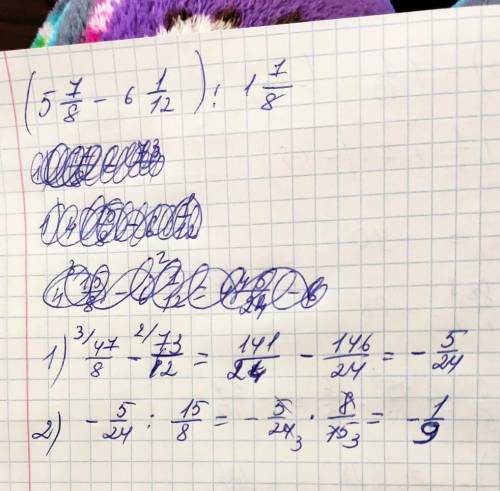 (5 7/8 - 6 1/12) : 1 7/8
1) 3/ 47/8 - 2/ 73/12 = 141/24 - 146/24 = - 5/24
2) - 5/24 : 15/8 = - 5/24 3 · 8/15 3 = - 1/9